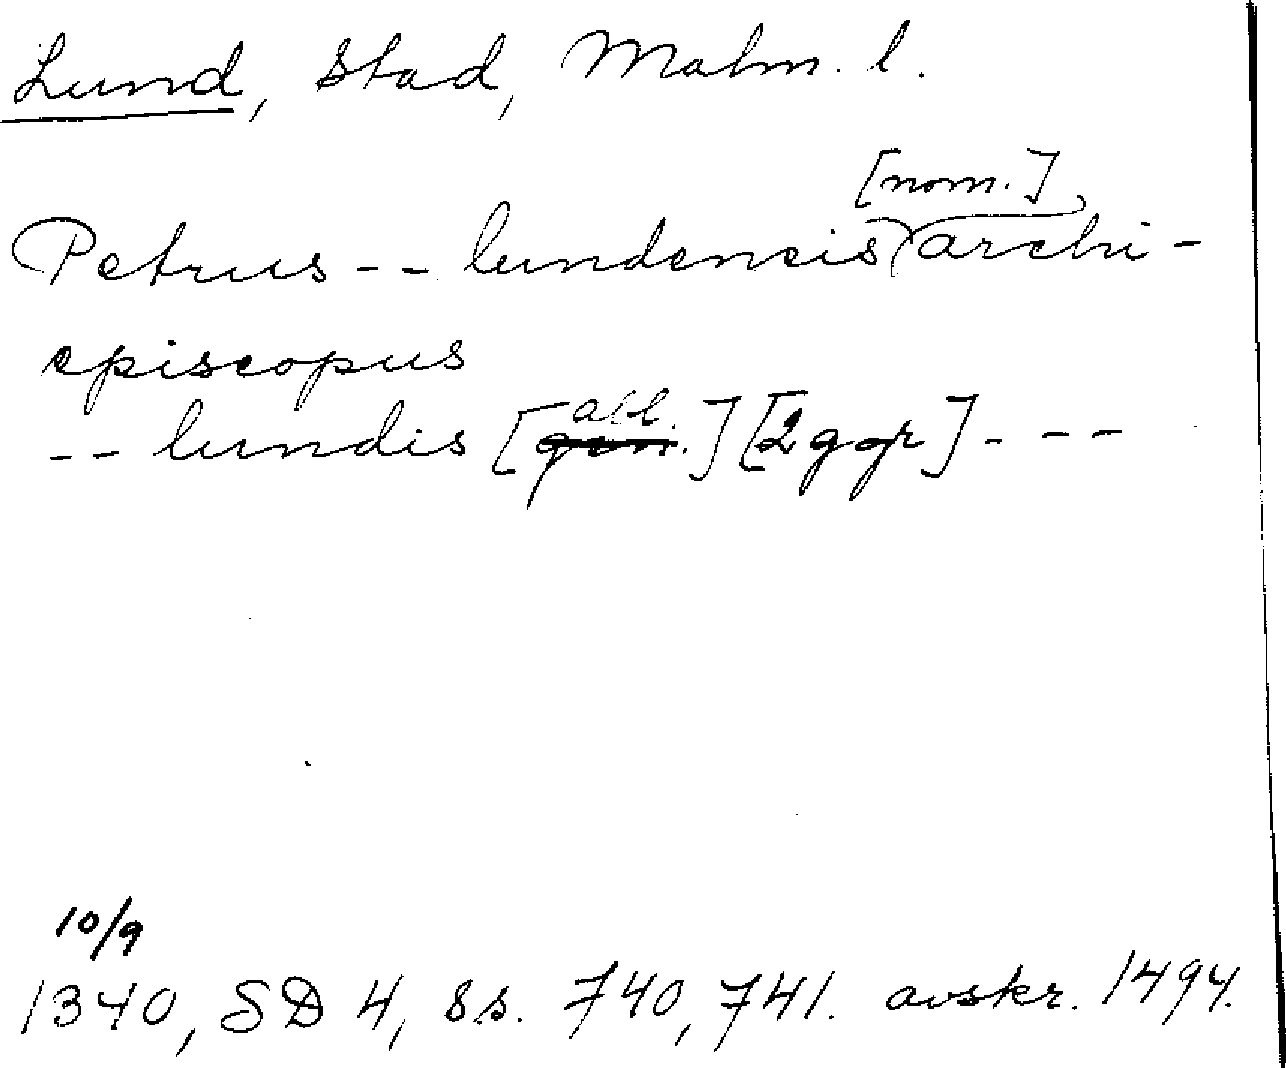 Lund, stad, Malm. l.
[nom.]
Petrus -- lundencis archi-
episcopus
-- lundis [abl.] [2 ggr] - --
10/9
1340, SD 4, ss. 740, 741. avskr. 1494.